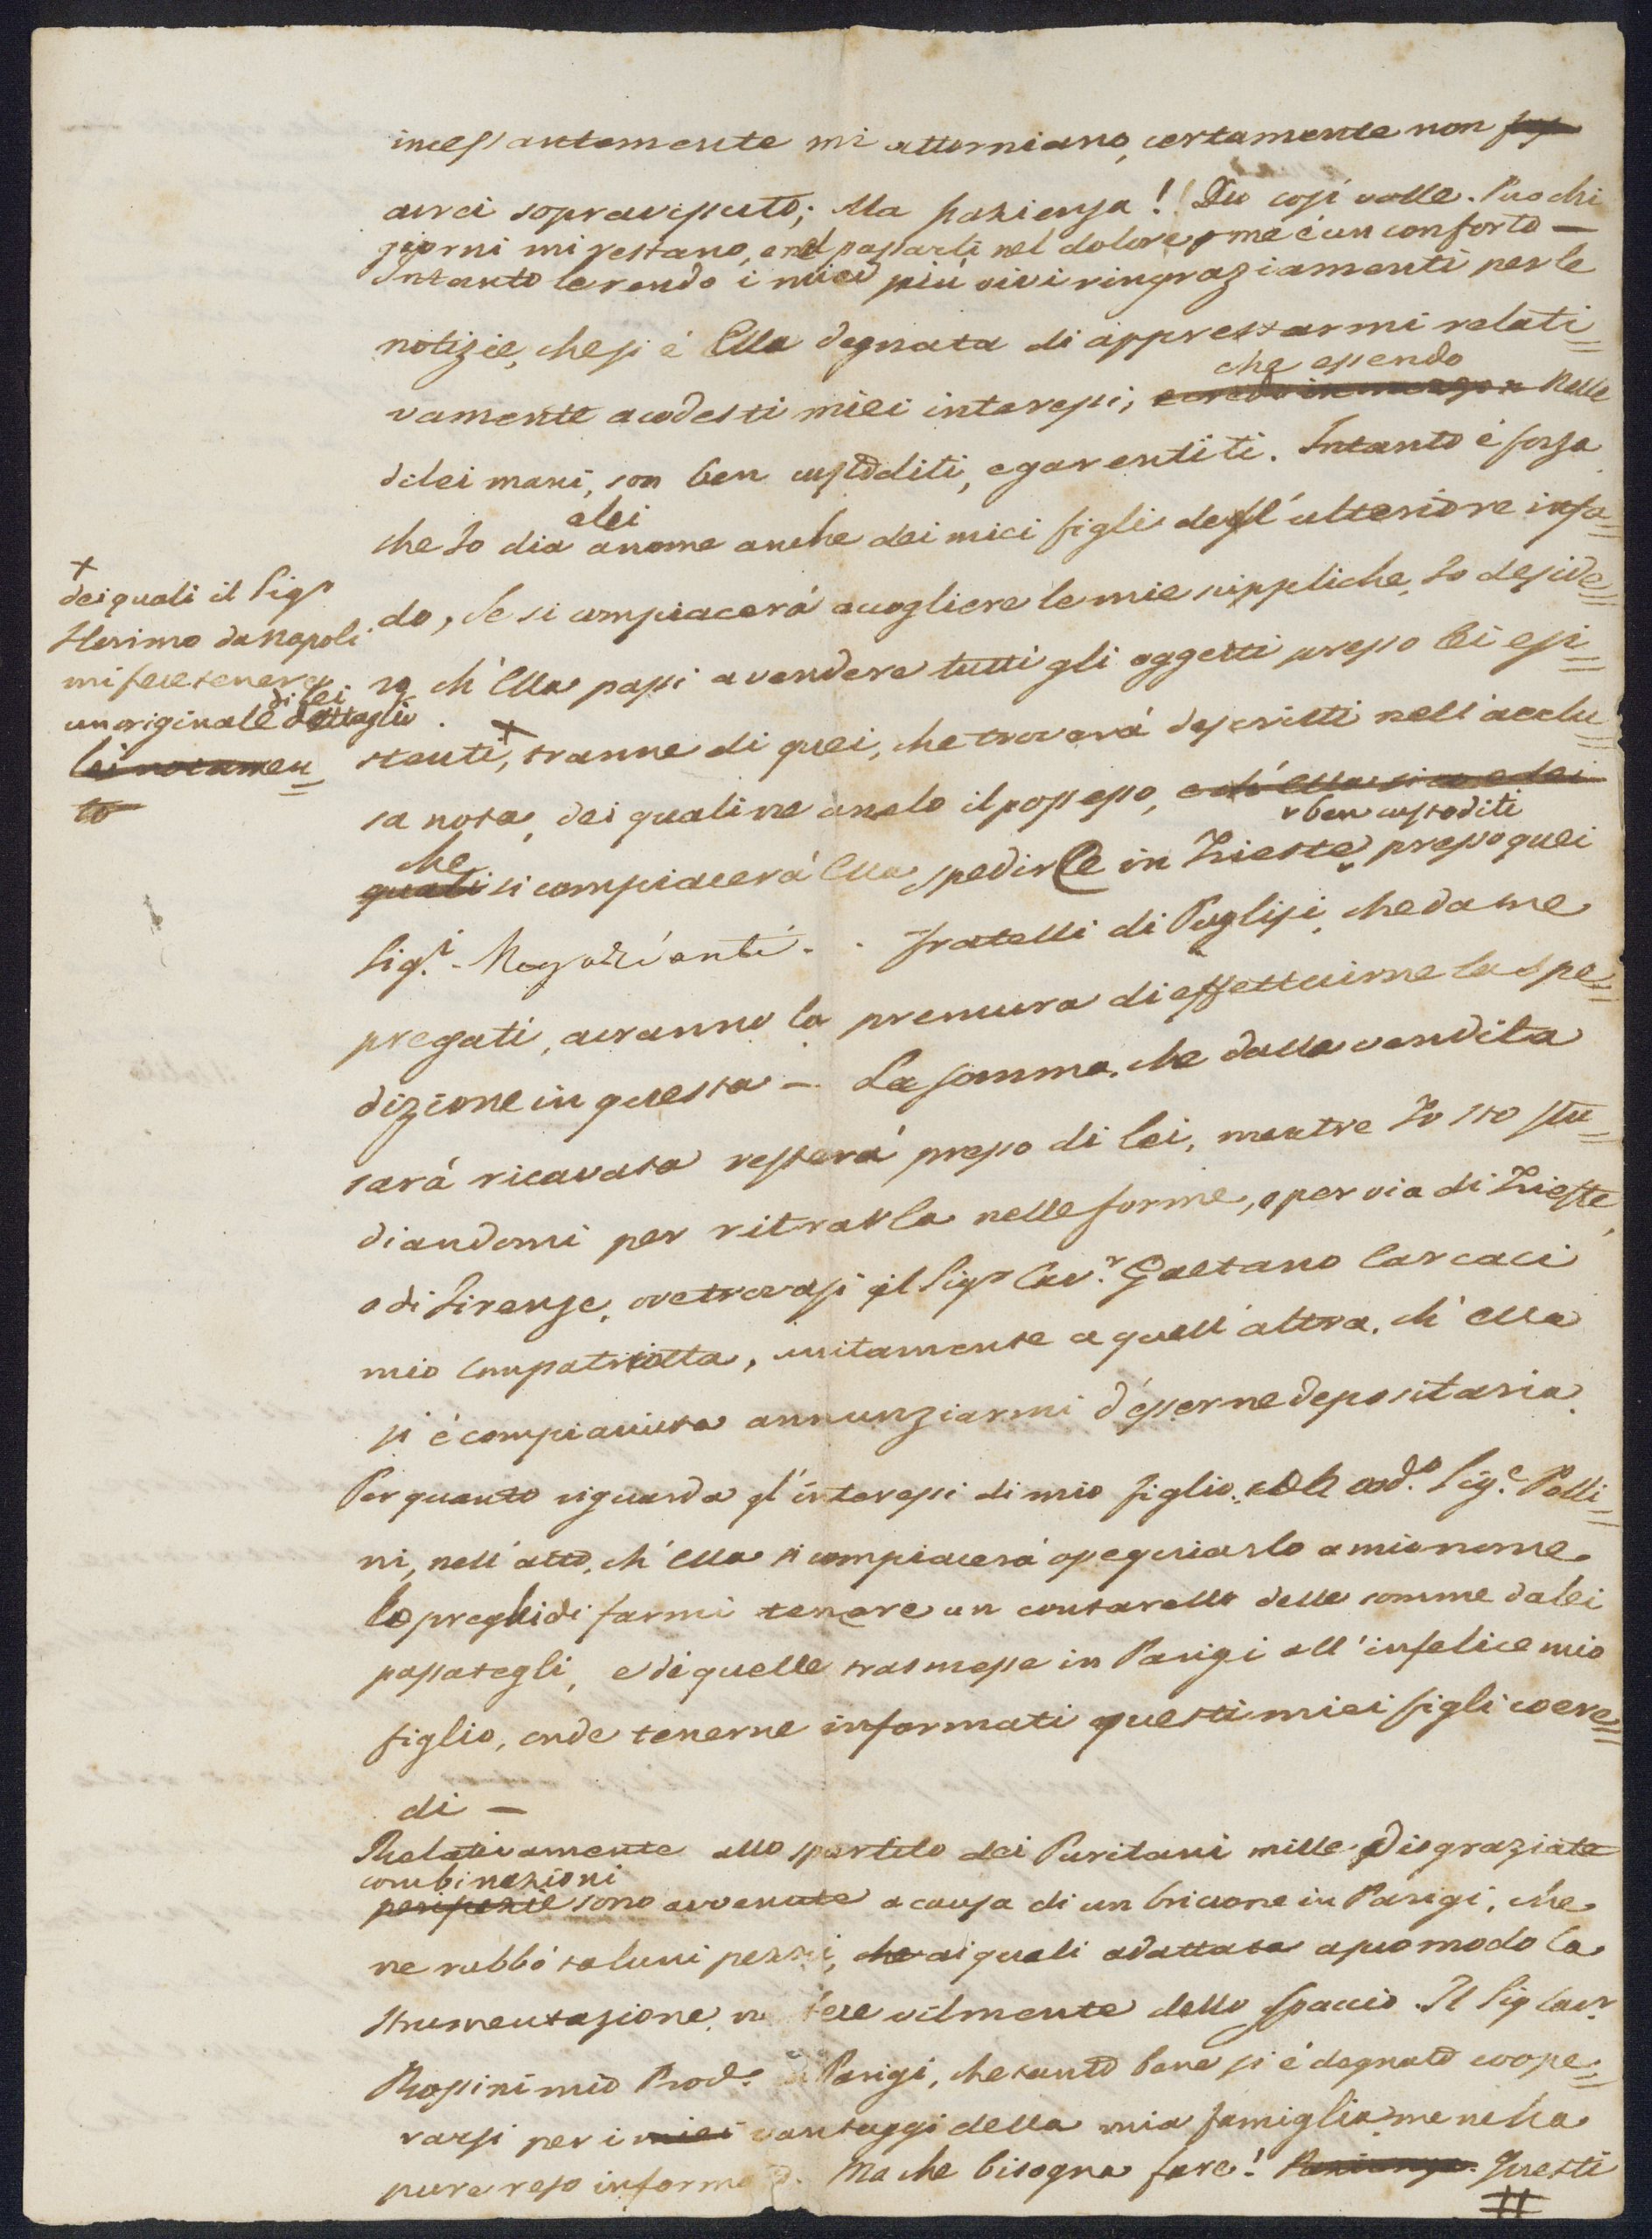 incessantemente mi attorniano, certamente non
avrei sopravissuto; Ma pazienza! Dio così volle. Puochi
giorni mi restano, e nel passarli nel dolore, a me è un conforto —
Intanto le rendo i miei più vivi ringraziamenti per le
notizie, che si è Ella degnata di apprestarmi relati=
che essendo
vamente a codesti miei interessi, nelle
di lei mani, son ben custoditi, e garentiti. Intanto è forza
a lei
che Io dia a nome anche dei miei figli dell'ulteriore infa=
do, Se si compiacerà accogliere le mie suppliche. Io deside=
ro, ch'Ella passi a vendere tutti gli oggetti presso lei esi=
stenti, + tranne di quei, che troverà descritti nell'acclu=
+
dei quali il Sigr
Sterimo da Napoli
mi fece tenere
di lei
un originale dettaglio
lei notamen=
to
sa nota, dei quali ne anelo il possesso, e ch'Ella
ben custoditi
che
quali si compiacerà Ella spedirle in Trieste, presso quei
Sigri. Negozianti . . fratelli di Puglisi, che da me
pregati, avranno la premura di effettuirne la spe=
dizione in questa — La somma, che dalla vendita
sarà ricavata resterà presso di lei, mentre Io sto stu=
diandomi per ritrarla nelle forme, o per via di Trieste,
o di Firenze, ove trovasi il Sigr Cavr. Gaetano Carcaci
mio Compatriotta, unitamente a quell'altra, ch'ella
si è compiaciuta annunziarmi d'esserne depositaria.
Per quanto riguarda gl'interessi di mio figlio col codo. Sige. Polli=
ni, nell'atto, ch'Ella si compiacerà ossequiarlo a mio nome
lo preghi di farmi tenere un contarello delle somme da lei
passategli, e di quelle trasmesse in Parigi all'infelice mio
figlio, onde tenerne informati questi miei figli coere=
di —
Relativamente allo spartito dei Puritani mille disgraziate
combinazioni
peripezie sono avvenute a causa di un briccone in Parigi, che
ne rubbò taluni pezzi, che ai quali adattata a suo modo la
strumentazione, ne fece vilmente dello spaccio. Il Sig Cavr.
Rossini mio Prode. in Parigi, che tanto bene si è degnato coope=
rarsi per i miei vantaggi della mia famiglia, me ne ha
pure reso informato. Ma che bisogna fare! Pazienza. Questi
#